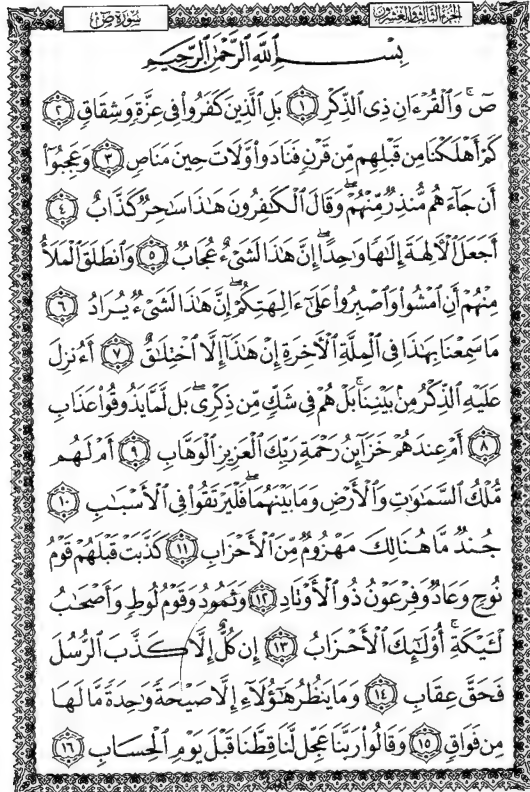 سُورَةُ صٓ
الجزء الثالث والعشرون
بِسْمِ ٱللَّهِ ٱلرَّحْمَٰنِ ٱلرَّحِيمِ
صٓ ۚ وَٱلْقُرْءَانِ ذِى ٱلذِّكْرِ ۝١ بَلِ ٱلَّذِينَ كَفَرُوا۟ فِى عِزَّةٍ وَشِقَاقٍ ۝٢
كَمْ أَهْلَكْنَا مِن قَبْلِهِم مِّن قَرْنٍ فَنَادَوا۟ وَّلَاتَ حِينَ مَنَاصٍ ۝٣ وَعَجِبُوٓا۟
أَن جَآءَهُم مُّنذِرٌ مِّنْهُمْ ۖ وَقَالَ ٱلْكَٰفِرُونَ هَٰذَا سَٰحِرٌ كَذَّابٌ ۝٤
أَجَعَلَ ٱلْءَالِهَةَ إِلَٰهًا وَٰحِدًا ۖ إِنَّ هَٰذَا لَشَىْءٌ عُجَابٌ ۝٥ وَٱنطَلَقَ ٱلْمَلَأُ
مِنْهُمْ أَنِ ٱمْشُوا۟ وَٱصْبِرُوا۟ عَلَىٰٓ ءَالِهَتِكُمْ ۖ إِنَّ هَٰذَا لَشَىْءٌ يُرَادُ ۝٦
مَا سَمِعْنَا بِهَٰذَا فِى ٱلْمِلَّةِ ٱلْءَاخِرَةِ إِنْ هَٰذَآ إِلَّا ٱخْتِلَٰقٌ ۝٧ أَءُنزِلَ
عَلَيْهِ ٱلذِّكْرُ مِنۢ بَيْنِنَا ۚ بَلْ هُمْ فِى شَكٍّ مِّن ذِكْرِى ۖ بَل لَّمَّا يَذُوقُوا۟ عَذَابِ
۝٨ أَمْ عِندَهُمْ خَزَآئِنُ رَحْمَةِ رَبِّكَ ٱلْعَزِيزِ ٱلْوَهَّابِ ۝٩ أَمْ لَهُم
مُّلْكُ ٱلسَّمَٰوَٰتِ وَٱلْأَرْضِ وَمَا بَيْنَهُمَا ۖ فَلْيَرْتَقُوا۟ فِى ٱلْأَسْبَٰبِ ۝١٠
جُندٌ مَّا هُنَالِكَ مَهْزُومٌ مِّنَ ٱلْأَحْزَابِ ۝١١ كَذَّبَتْ قَبْلَهُمْ قَوْمُ
نُوحٍ وَعَادٌ وَفِرْعَوْنُ ذُو ٱلْأَوْتَادِ ۝١٢ وَثَمُودُ وَقَوْمُ لُوطٍ وَأَصْحَٰبُ
لْـَٔيْكَةِ ۚ أُو۟لَٰٓئِكَ ٱلْأَحْزَابُ ۝١٣ إِن كُلٌّ إِلَّا كَذَّبَ ٱلرُّسُلَ
فَحَقَّ عِقَابِ ۝١٤ وَمَا يَنظُرُ هَٰٓؤُلَآءِ إِلَّا صَيْحَةً وَٰحِدَةً مَّا لَهَا
مِن فَوَاقٍ ۝١٥ وَقَالُوا۟ رَبَّنَا عَجِّل لَّنَا قِطَّنَا قَبْلَ يَوْمِ ٱلْحِسَابِ ۝١٦